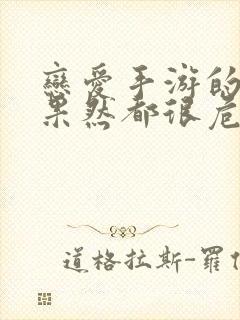 戀愛手游的
果然都很危
道格拉斯-羅